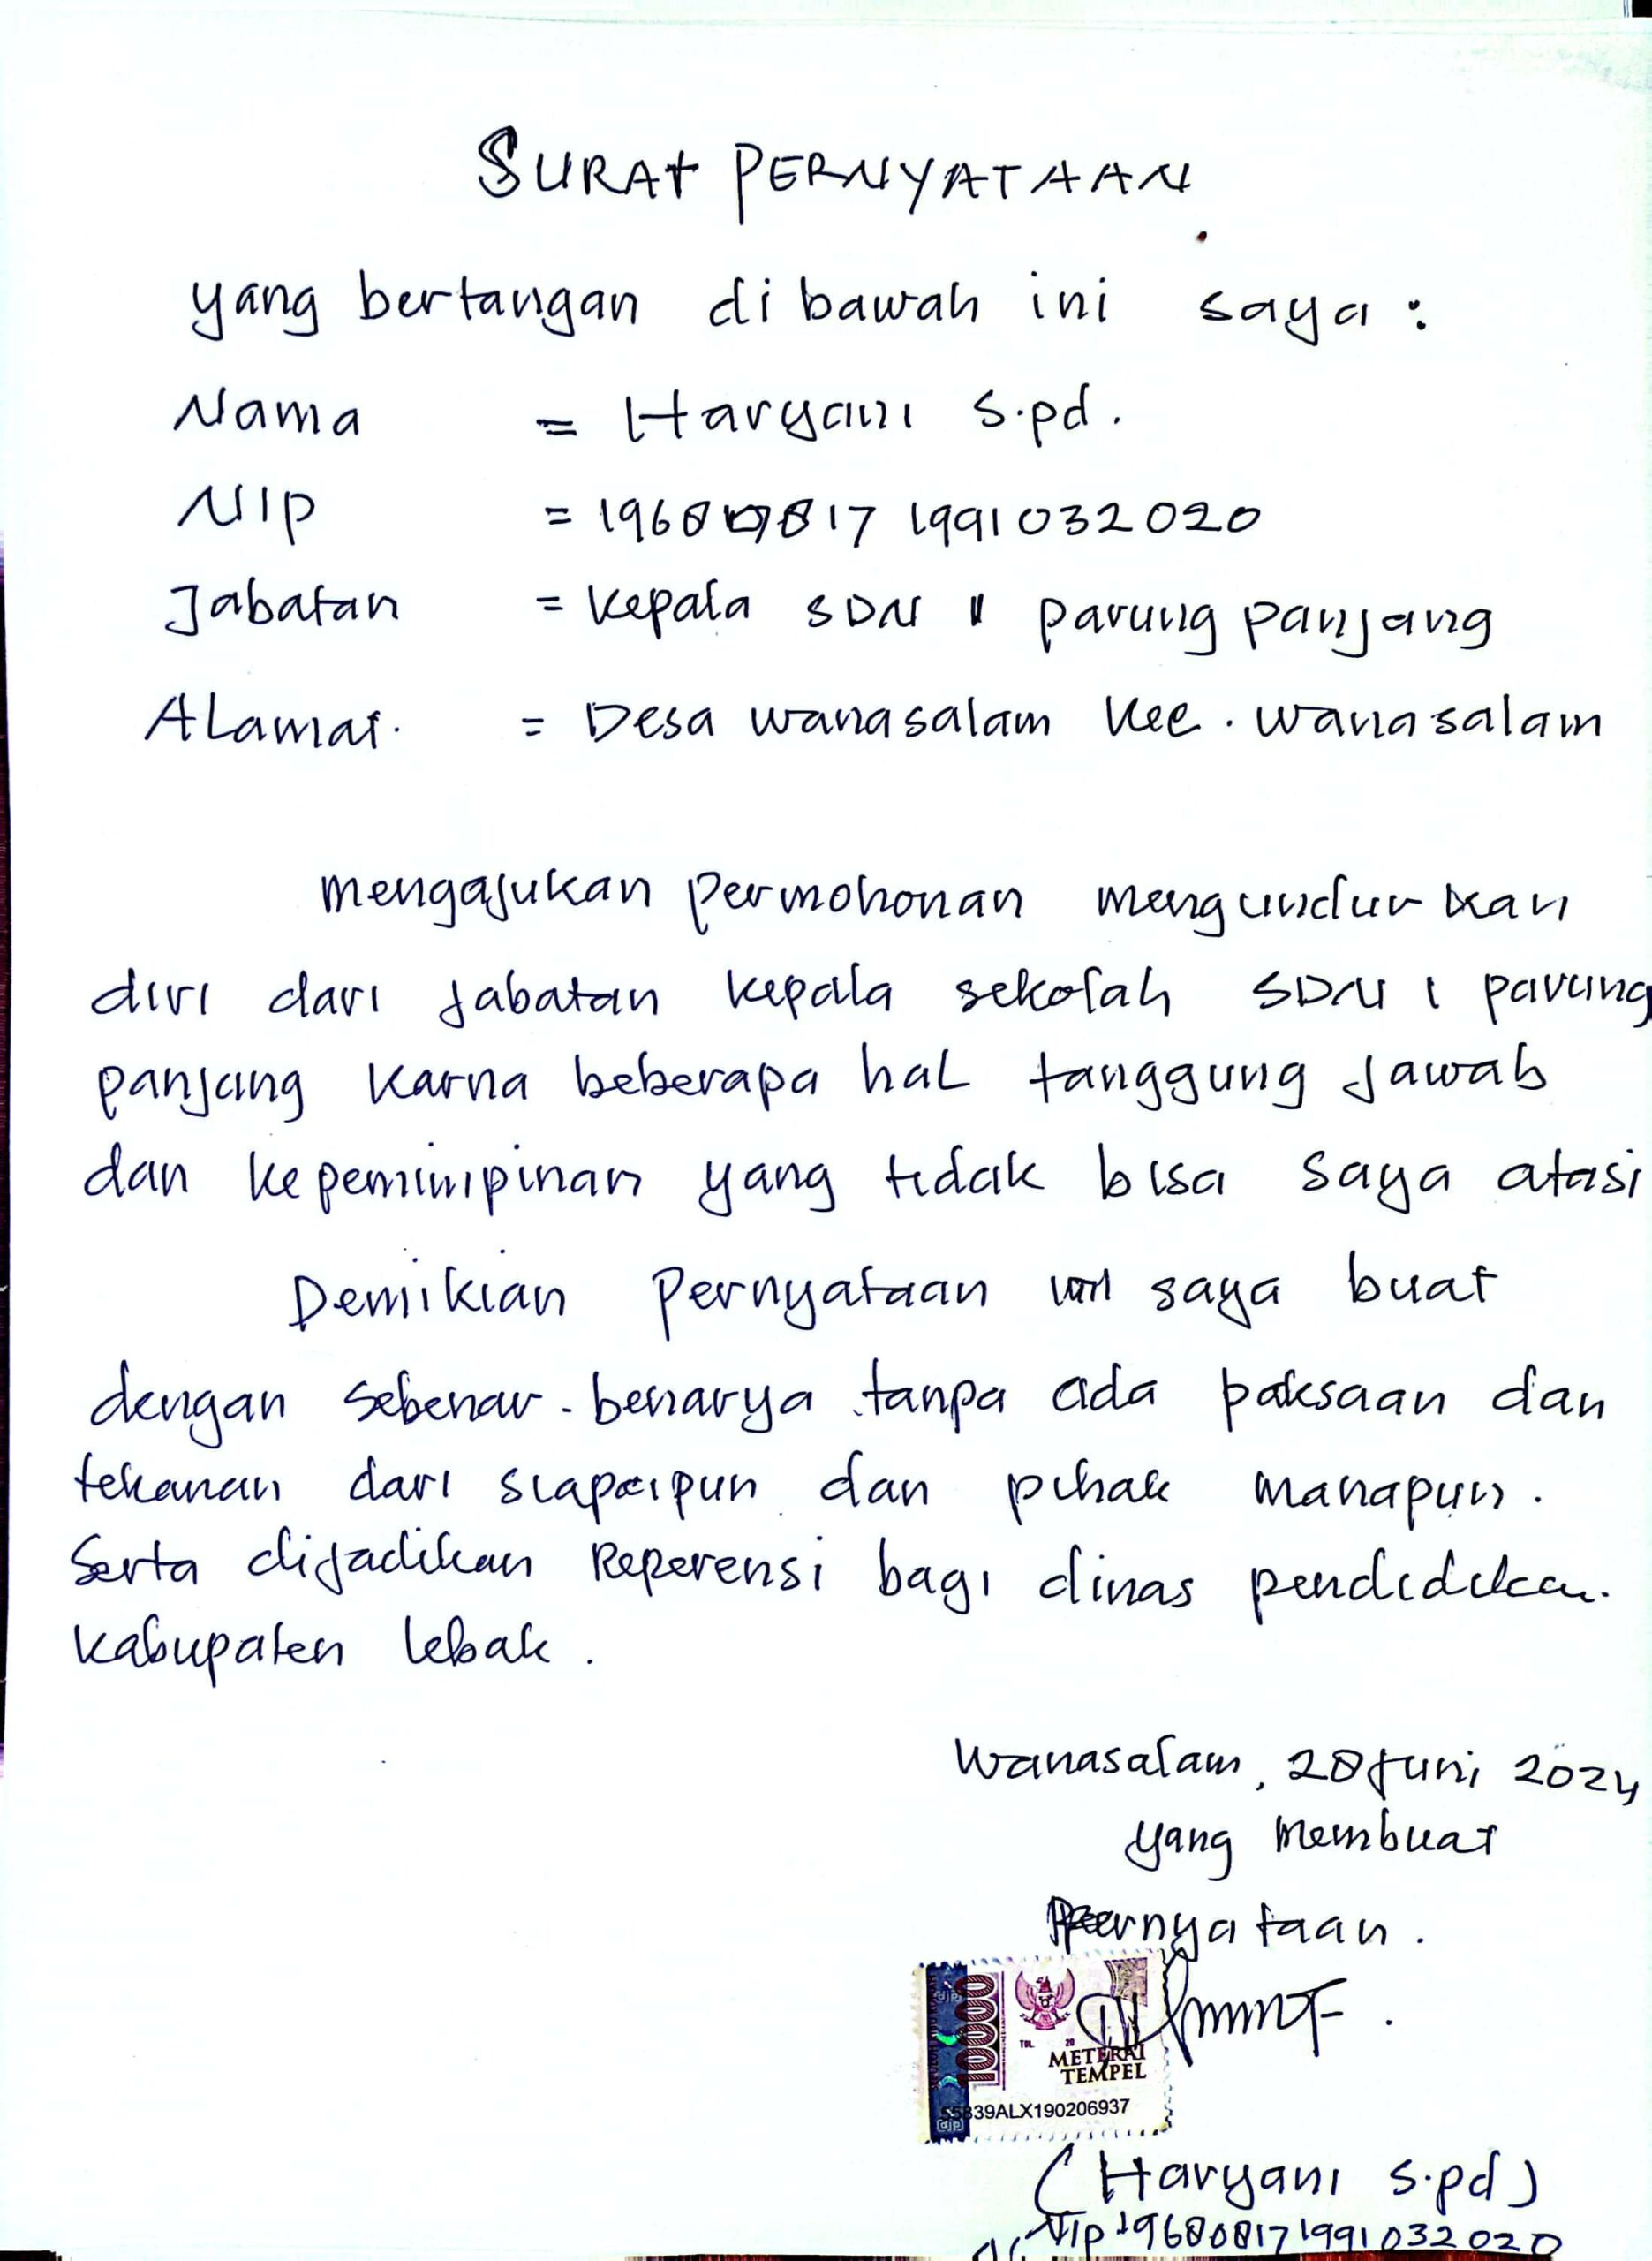 SURAT PERNYATAAN
yang bertangan dibawah ini saya :
Nama = Haryani S.pd.
NIP = 19680817 1991032020
Jabatan = Kepala SDN 1 parung panjang
ALamat. = Desa wanasalam Kec. wanasalam
mengajukan permohonan mengundurkan
diri dari jabatan kepala sekolah SDN 1 parung
panjang karna beberapa haL tanggung jawab
dan kepemimpinan yang tidak bisa saya atasi
Demikian Pernyataan ini saya buat
dengan sebenar-benarya tanpa ada paksaan dan
tekanan dari siapaipun dan pihak manapun.
Serta dijadikan Reperensi bagi dinas pendidikan.
kabupaten lebak.
Wanasalam, 28 Juni 2024
yang membuat
Pernyataan.
10000
djp
TGL. 20
METERAI
TEMPEL
39ALX190206937
djp
(Haryani S.pd)
Nip 196808171991032020